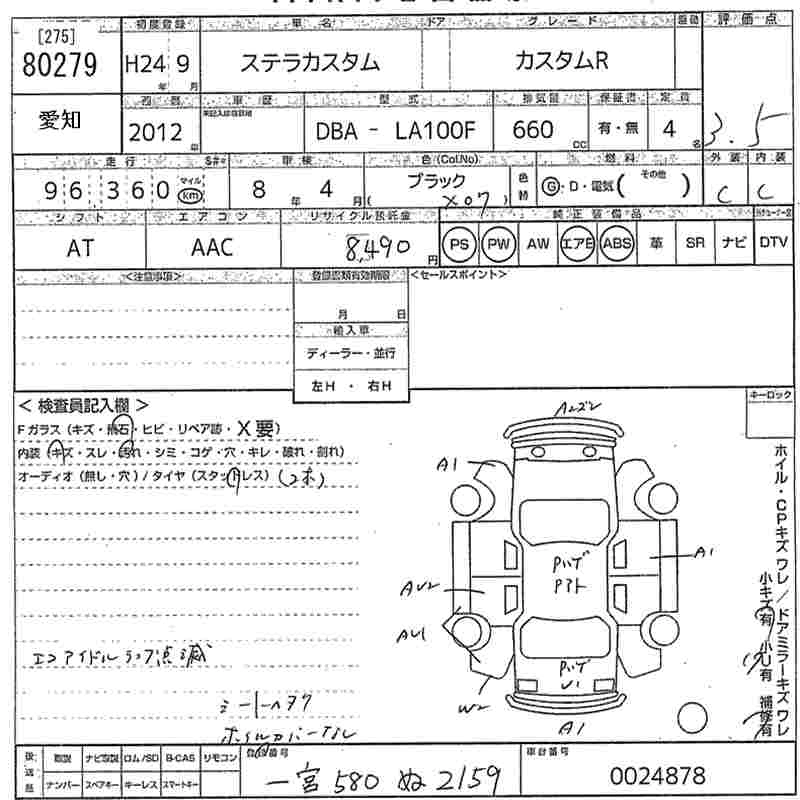 [275]
80279
初度登録 車名 ドア グレード 評価点
H24年 9月 ステラカスタム カスタムR
愛知
西暦 車歴 型式 排気量 保証書 定員
2012年 DBA - LA100F 660cc 有・無 4名 3.5
走行 車検 色(Col.No) 燃料 外装 内装
96,360 マイル km 8年 4月 ブラック (X07) 色替 G・D・電気( その他 ) C C
シフト エアコン リサイクル預託金 純正装備品
AT AAC 8,490円 PS PW AW エアB ABS 革 SR ナビ DTV
<注意事項> 登録書類有効期限 <セールスポイント>
月 日
輸入車
ディーラー・並行
左H ・ 右H
< 検査員記入欄 > キーロック
Fガラス(キズ・飛石・ヒビ・リペア跡・X要)
内装(キズ・スレ・汚れ・シミ・コゲ・穴・キレ・破れ・削れ)
オーディオ(無し・穴)/タイヤ(スタッドレス)(2本)
A1
A1
AU2
AU1
W2
A1
U1
エコアイドルランプ点滅
シートヘタり
ホイルカバーナシ
ホイル・CPキズワレ/ドアミラーキズワレ
小キズ有 小U有 補修有
後送品 取説 ナビ取説 ロム/SD B-CAS リモコン 登録番号 車台番号
ナンバー スペアキー キーレス スマートキー 一宮 580 ぬ 2159 0024878